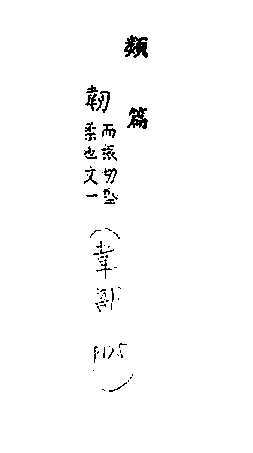 類篇
韌
而振切堅
柔也文一
(韋部 P175)